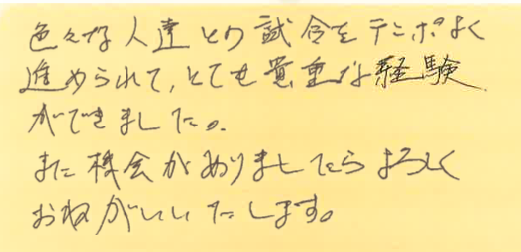 色々な人達との試合をテンポよく
進められて、とても貴重な経験
ができました。
また機会がありましたらよろしく
おねがいいたします。